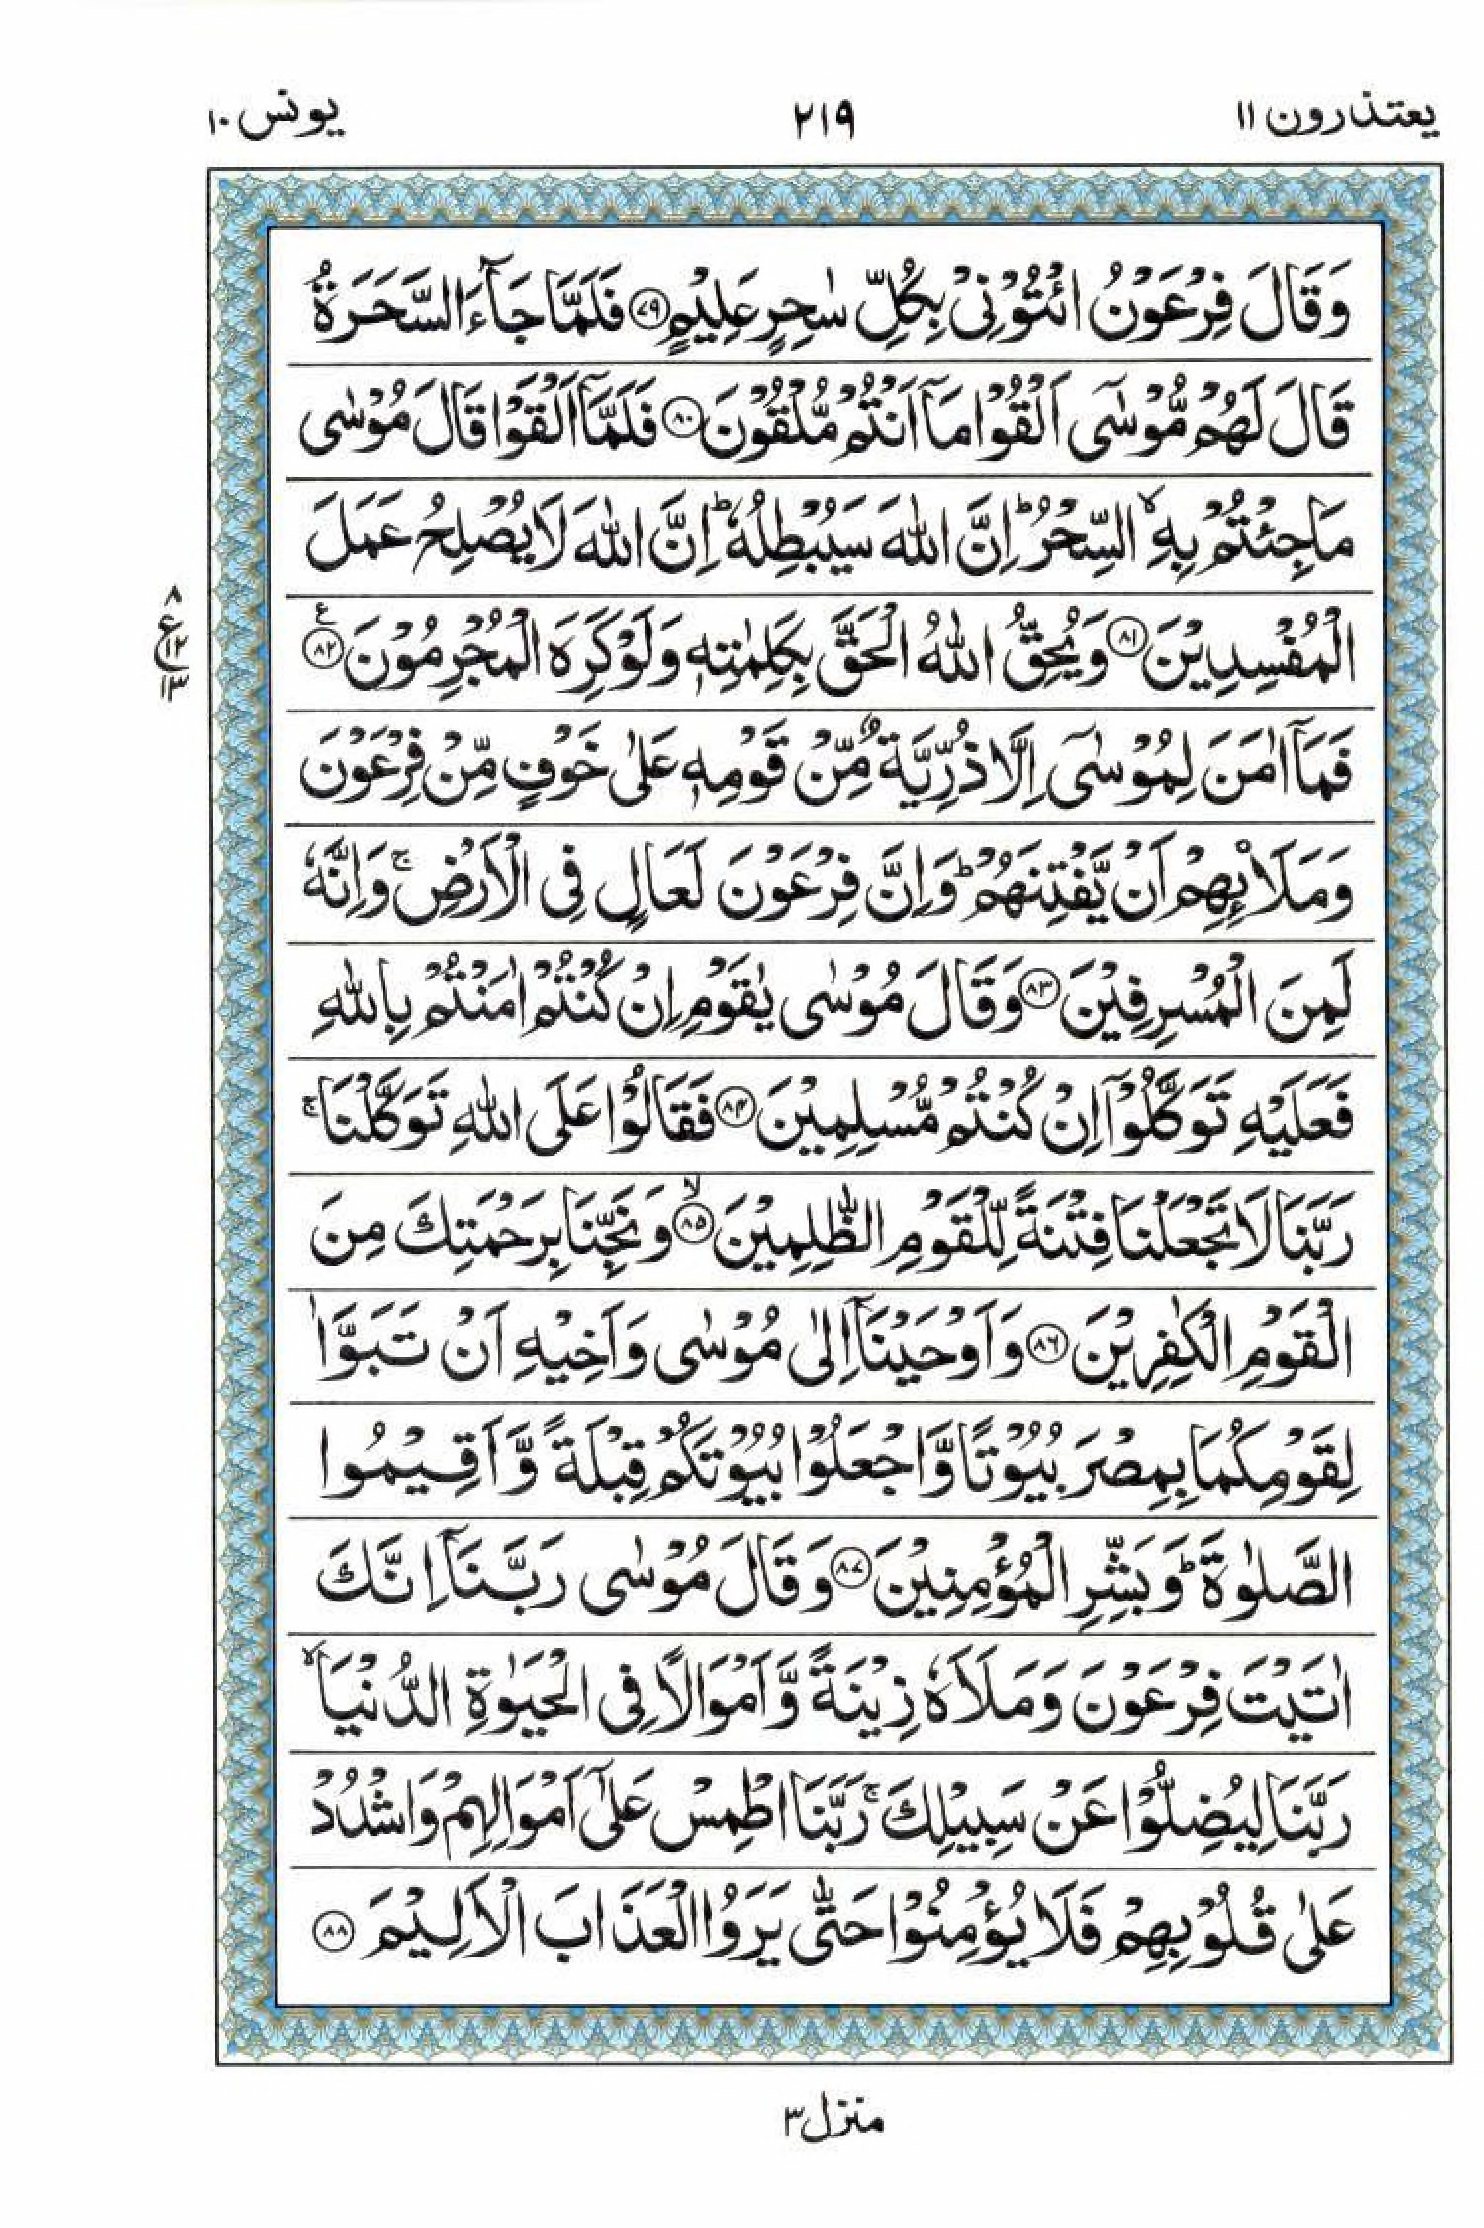 يعتذرون ١١
٢١٩
يونس ١٠
وَقَالَ فِرْعَوْنُ ائْتُوْنِیْ بِكُلِّ سٰحِرٍ عَلِیْمٍ ﴿۷۹﴾ فَلَمَّا جَآءَ السَّحَرَةُ
قَالَ لَهُمْ مُّوْسٰۤی اَلْقُوْا مَاۤ اَنْتُمْ مُّلْقُوْنَ ﴿۸۰﴾ فَلَمَّاۤ اَلْقَوْا قَالَ مُوْسٰی
مَا جِئْتُمْ بِهِ ۙ السِّحْرُ ؕ اِنَّ اللّٰهَ سَیُبْطِلُهٗ ؕ اِنَّ اللّٰهَ لَا یُصْلِحُ عَمَلَ
الْمُفْسِدِیْنَ ﴿۸۱﴾ وَیُحِقُّ اللّٰهُ الْحَقَّ بِكَلِمٰتِهٖ وَلَوْ كَرِهَ الْمُجْرِمُوْنَ ﴿۸۲﴾ ع
٨
ع ١٢
١٣
فَمَاۤ اٰمَنَ لِمُوْسٰۤی اِلَّا ذُرِّیَّةٌ مِّنْ قَوْمِهٖ عَلٰی خَوْفٍ مِّنْ فِرْعَوْنَ
وَمَلَا۠ئِهِمْ اَنْ یَّفْتِنَهُمْ ؕ وَاِنَّ فِرْعَوْنَ لَعَالٍ فِی الْاَرْضِ ۚ وَاِنَّهٗ
لَمِنَ الْمُسْرِفِیْنَ ﴿۸۳﴾ وَقَالَ مُوْسٰی یٰقَوْمِ اِنْ كُنْتُمْ اٰمَنْتُمْ بِاللّٰهِ
فَعَلَیْهِ تَوَكَّلُوْۤا اِنْ كُنْتُمْ مُّسْلِمِیْنَ ﴿۸۴﴾ فَقَالُوْا عَلَی اللّٰهِ تَوَكَّلْنَا ۚ
رَبَّنَا لَا تَجْعَلْنَا فِتْنَةً لِّلْقَوْمِ الظّٰلِمِیْنَ ﴿۸۵﴾ ۙ وَنَجِّنَا بِرَحْمَتِكَ مِنَ
الْقَوْمِ الْكٰفِرِیْنَ ﴿۸۶﴾ وَاَوْحَیْنَاۤ اِلٰی مُوْسٰی وَاَخِیْهِ اَنْ تَبَوَّاٰ
لِقَوْمِكُمَا بِمِصْرَ بُیُوْتًا وَّاجْعَلُوْا بُیُوْتَكُمْ قِبْلَةً وَّاَقِیْمُوا
الصَّلٰوةَ ؕ وَبَشِّرِ الْمُؤْمِنِیْنَ ﴿۸۷﴾ وَقَالَ مُوْسٰی رَبَّنَاۤ اِنَّكَ
اٰتَیْتَ فِرْعَوْنَ وَمَلَاَهٗ زِیْنَةً وَّاَمْوَالًا فِی الْحَیٰوةِ الدُّنْیَا ۙ
رَبَّنَا لِیُضِلُّوْا عَنْ سَبِیْلِكَ ۚ رَبَّنَا اطْمِسْ عَلٰۤی اَمْوَالِهِمْ وَاشْدُدْ
عَلٰی قُلُوْبِهِمْ فَلَا یُؤْمِنُوْا حَتّٰی یَرَوُا الْعَذَابَ الْاَلِیْمَ ﴿۸۸﴾
منزل ٣